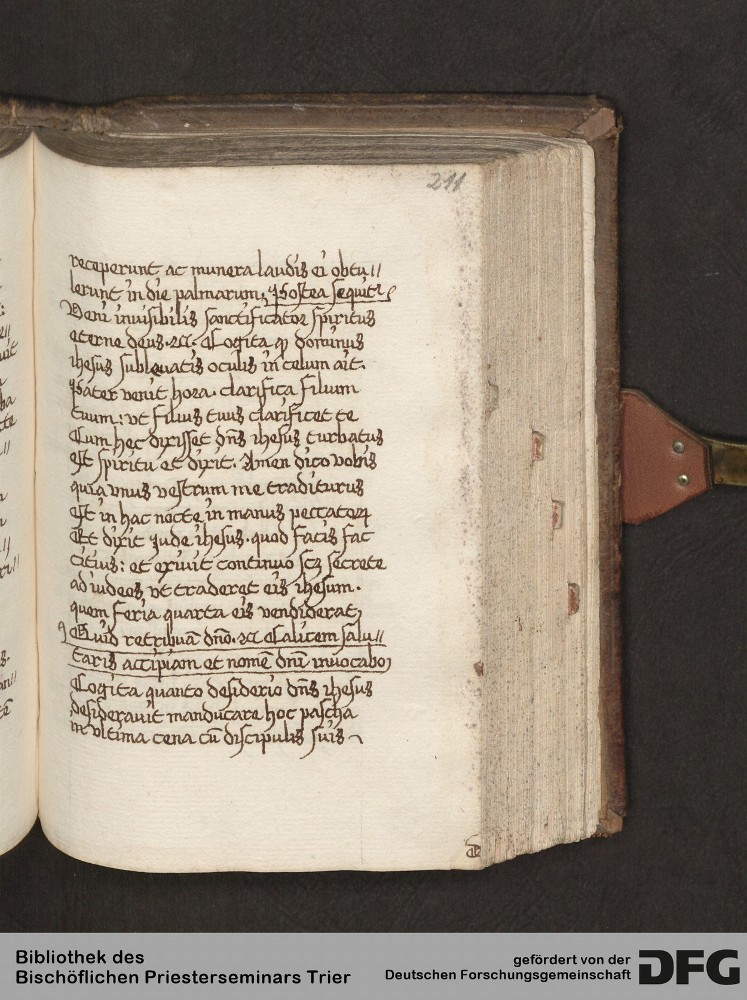 211
receperunt ac munera laudis ei obtu//
lerunt in die palmarum, Postea sequitr
Veni invisibilis sanctificator spiritus
eterne deus. rc. Cogita qꝫ dominus
ihesus sublevatis oculis in celum ait.
Pater venit hora. clarifica filium
tuum: vt filius tuus clarificet te
Cum hec dixisset dn̄s ihesus turbatus
est spiritu et dixit. Amen dico vobis
quia vnus vestrum me traditurus
est in hac nocte in manus peccatoꝝ
Et dixit Jude ihesus. quod facis fac
citius: et exiuit continuo scꝫ secrete
ad iudeos vt traderet eis ihesum.
quem feria quarta eis vendiderat,
Quid retribuā dn̄o. rc Calicem salu//
taris accipiam et nomē dn̄i inuocabo,
Cogita quanto desiderio dn̄s ihesus
desiderauit manducare hoc pascha
in vltima cena cū discipulis suis
Bibliothek des
Bischöflichen Priesterseminars Trier
gefördert von der
Deutschen Forschungsgemeinschaft
DFG